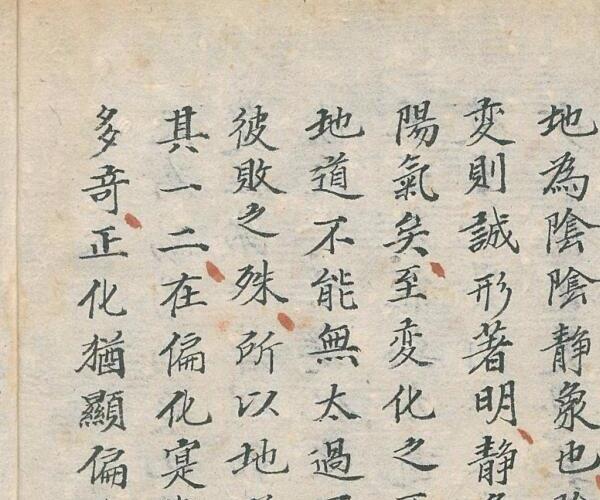 地為陰陰静象也
変則誠形著明静
陽氣矣至変化之
地道不能無太過
彼敗之殊所以地
其一二在偏化寔
多竒正化猶顯偏